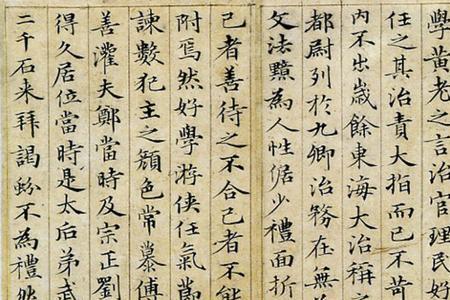 學黃老之言治官理民好
任之其治責大指而已不苛
內不出歲餘東海大治稱之
都尉列於九卿治務在無
文法黯為人性倨少禮面折
己者善待之不合己者不能
附焉然好學游俠任氣節
諫數犯主之顏色常慕傅
善灌夫鄭當時及宗正劉
得久居位當時是太后弟武
二千石来拜謁蚡不為禮然